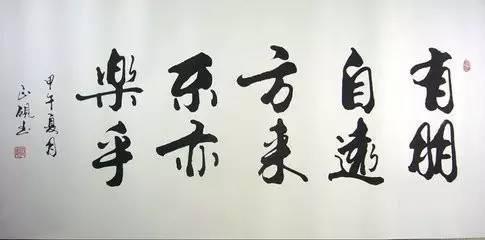 有朋
自遠
方来
不亦
樂乎
甲午夏月